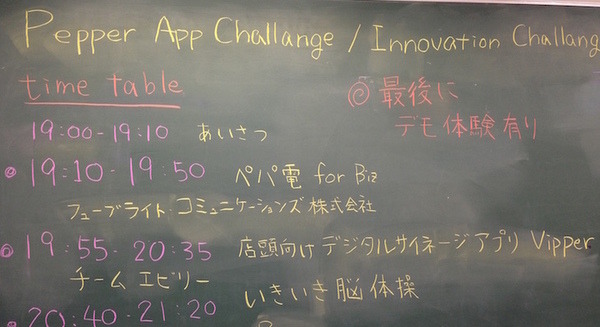 Pepper App Challange / Innovation Challang
time table
◎ 最後に
デモ体験有り
19:00-19:10 あいさつ
19:10-19:50 ペパ電 for Biz
フューブライト コミュニケーションズ 株式会社
19:55-20:35 店頭向け デジタルサイネージアプリ Vipper
チーム エビリー
20:40-21:20 いきいき脳体操